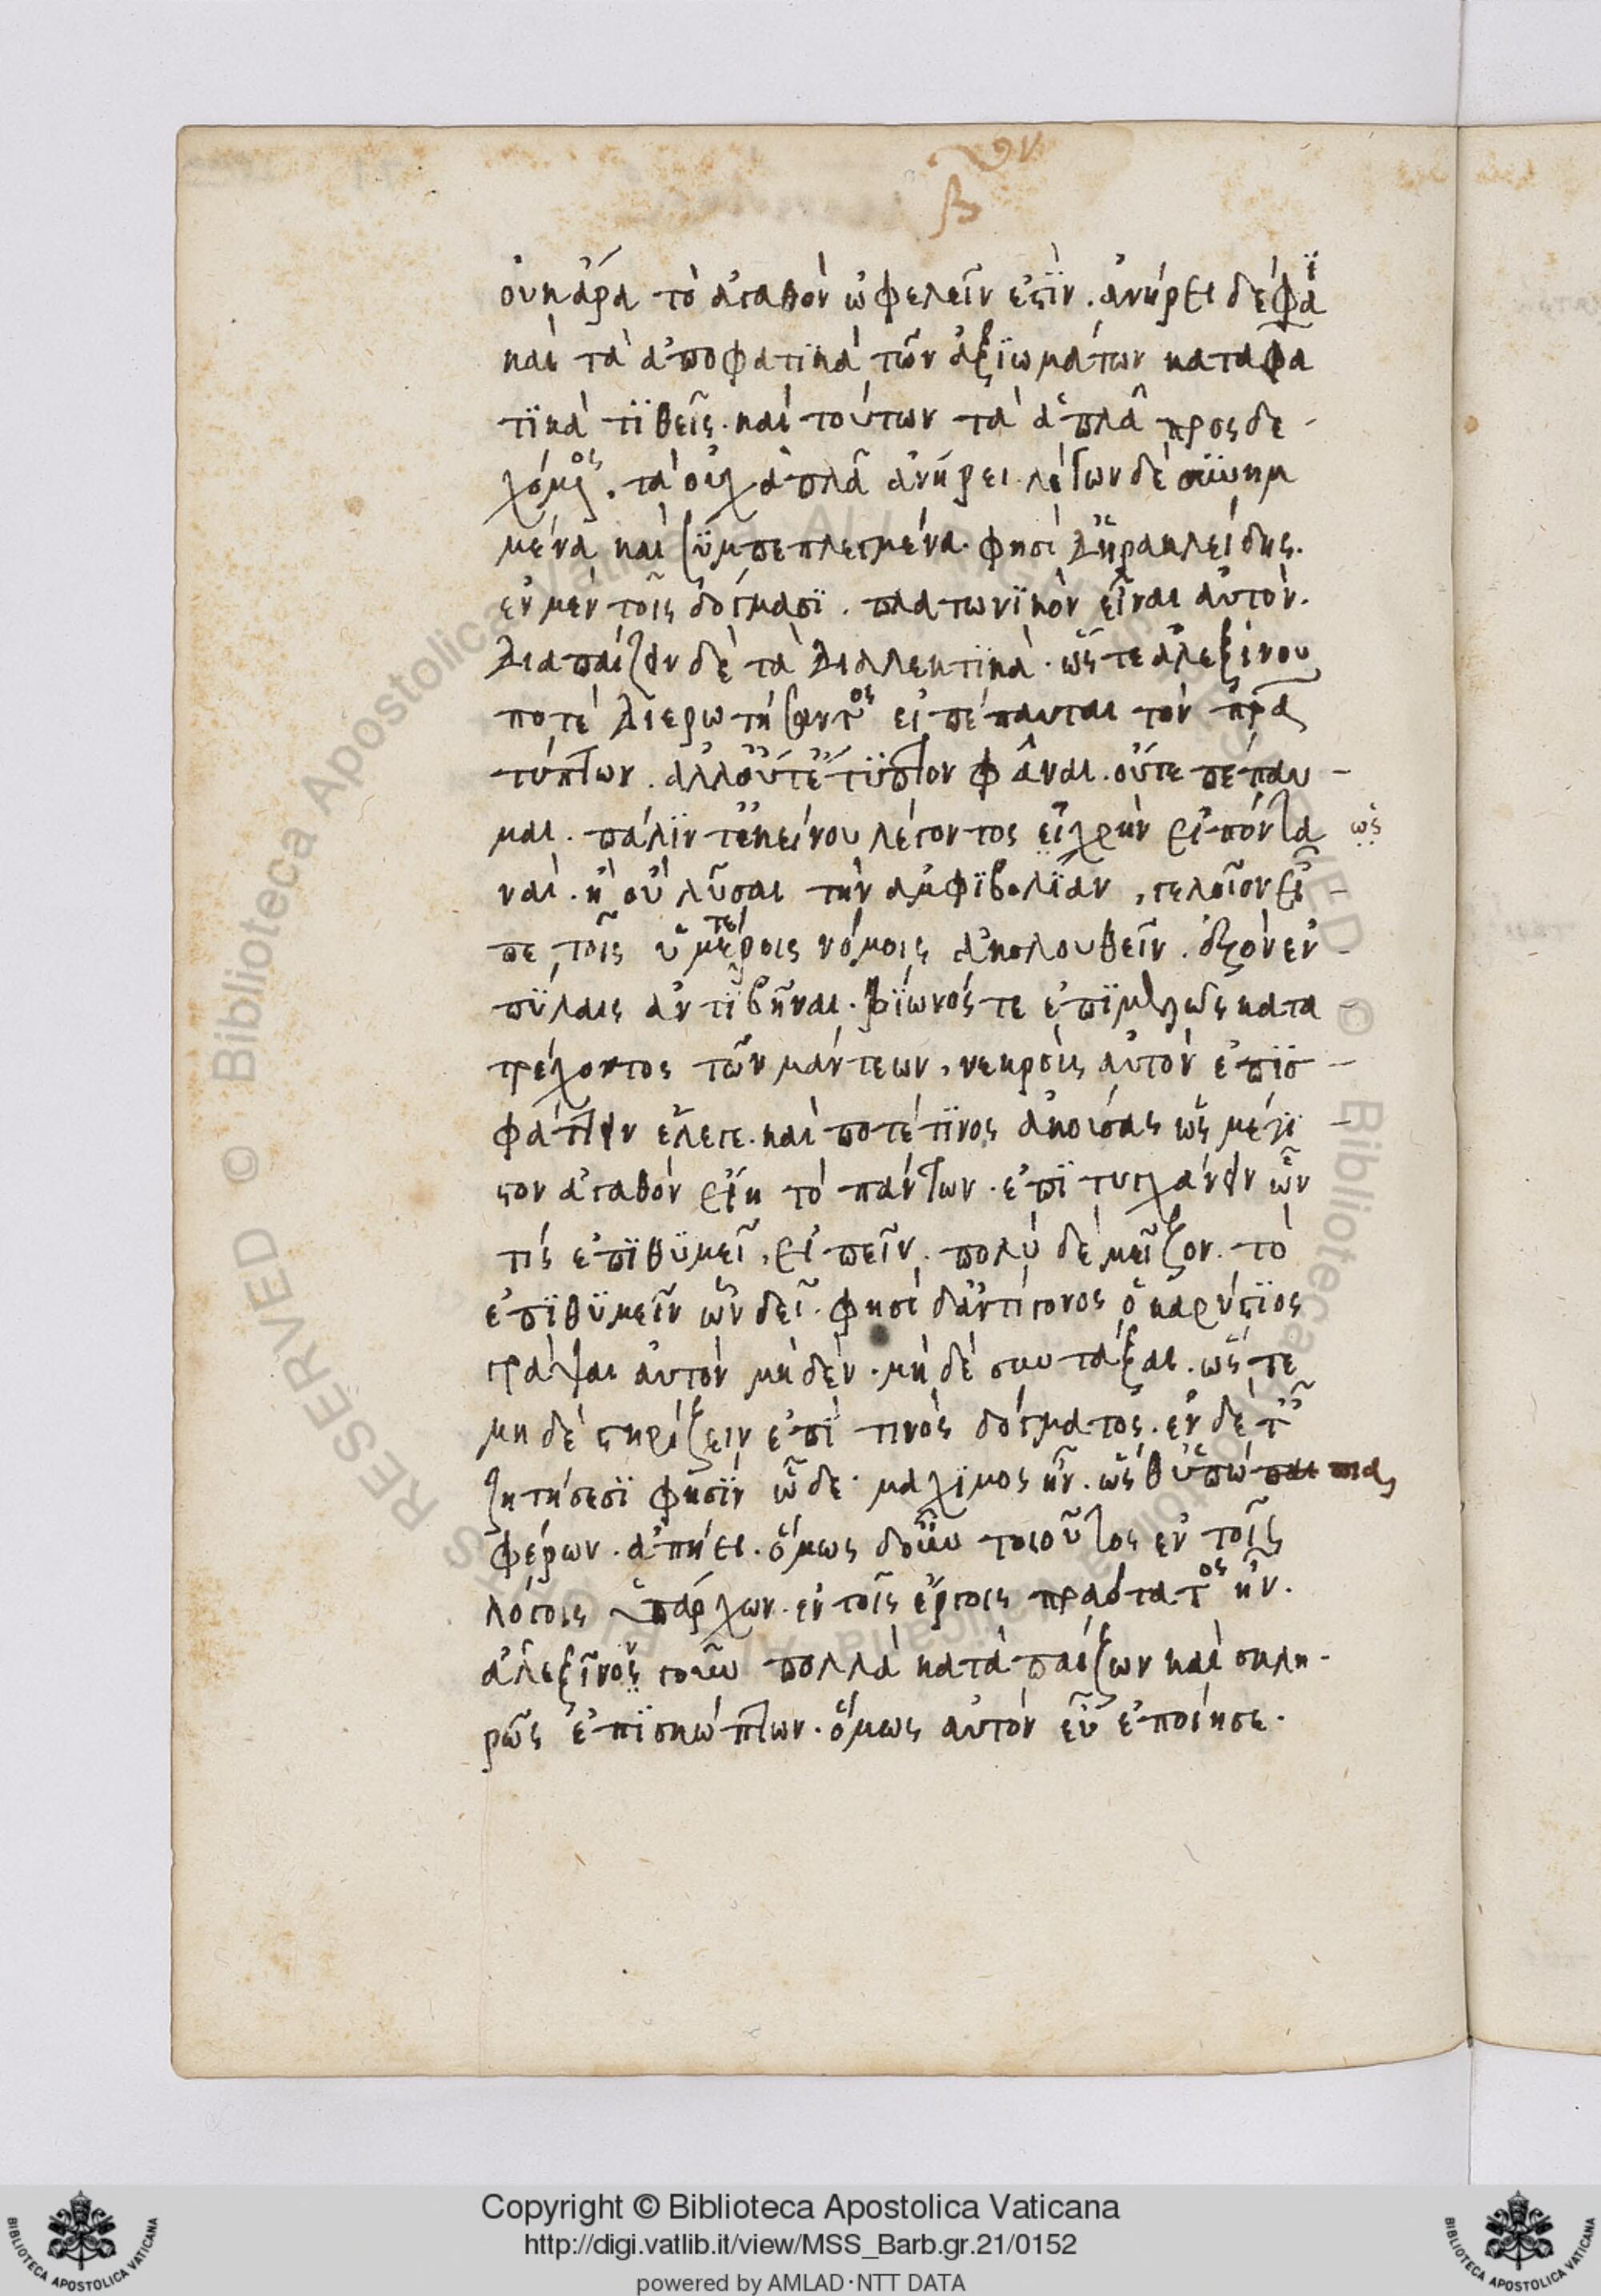 β
οὐκ ἄρα τὸ ἀγαθὸν ὠφελεῖν ἐστϊν. ἀνήρει δέ φα
καὶ τὰ ἀποφατϊκὰ τῶν ἀξϊωμάτων καταφα
τϊκὰ τϊθεῖς. καὶ τούτων τὰ ἁπλᾶ προσδε -
χόμενος. τὰ οὐχ ἁπλᾶ ἀνήρει. λέγων δὲ συνημ
μένα καὶ συμπεπλεγμένα. φησὶ δ' ἡρακλείδης.
ἐν μὲν τοῖς δόγμασϊ. πλατωνϊκὸν εἶναι αὐτὸν.
διαπαίζειν δὲ τὰ διαλεκτϊκὰ. ὥστε ἀλεξίνου
ποτὲ διερωτήσαντος εἰ πέπαυται τὸν πρα
τύπτων. ἀλλ' οὔτ' ἔτϋπτον φᾶναι. οὔτε πέπαυ -
μαι. πάλϊν τ' ἐκείνου λέγοντος εἰ χρὴν εἰπόντα ὡς
ναὶ. ἢ οὒ λῦσαι τὴν ἀμφϊβολϊάν, γελοῖον εἶ -
πε, τοῖς ὑμετέροις νόμοις ἀκολουθεῖν. ἐξὸν ἐν -
πϋλαις ἀντϊβῆναι. βϊωνός τε ἐπϊμελῶς κατα
τρέχοντος τῶν μάντεων, νεκροὺς αὐτὸν ἐπϊσ -
φάττειν ἔλεγε. καὶ ποτέ τϊνος ἀκούσας ὡς μέγϊ -
στον ἀγαθὸν εἴη τὸ πάντων. ἐπϊτυγχάνειν ὧν
τὶς ἐπϊθϋμεῖ, εἰπεῖν. πολὺ δὲ μεῖζον. τὸ
ἐπϊθϋμεῖν ὧν δεῖ. φησὶ δ' ἀντίγονος ὁ καρύστϊος
γράψαι αὐτὸν μηδὲν. μηδὲ συντάξαι. ὥστε
μηδὲ στηρίζειν ἐπϊ τινὸς δόγματος. ἐν δὲ τ
ζητήσεσϊ φησϊν ὧδε. μαχϊμος ἦν. ὥσθ' ὑπώπια
φέρων. ἀπῄει. ὅμως δ' οὖν τοιοῦτος ἐν τοῖς
λόγοις ὑπάρχων. ἐν τοῖς ἔργοις πραότατος ἦν.
ἀλεξῖνος γοῦν πολλὰ κατὰπαίζων καὶ σκλη -
ρῶς ἐπϊσκώπτων. ὅμως αὐτὸν εὖ ἐποίησε.
Copyright © Biblioteca Apostolica Vaticana
http://digi.vatlib.it/view/MSS_Barb.gr.21/0152
powered by AMLAD·NTT DATA